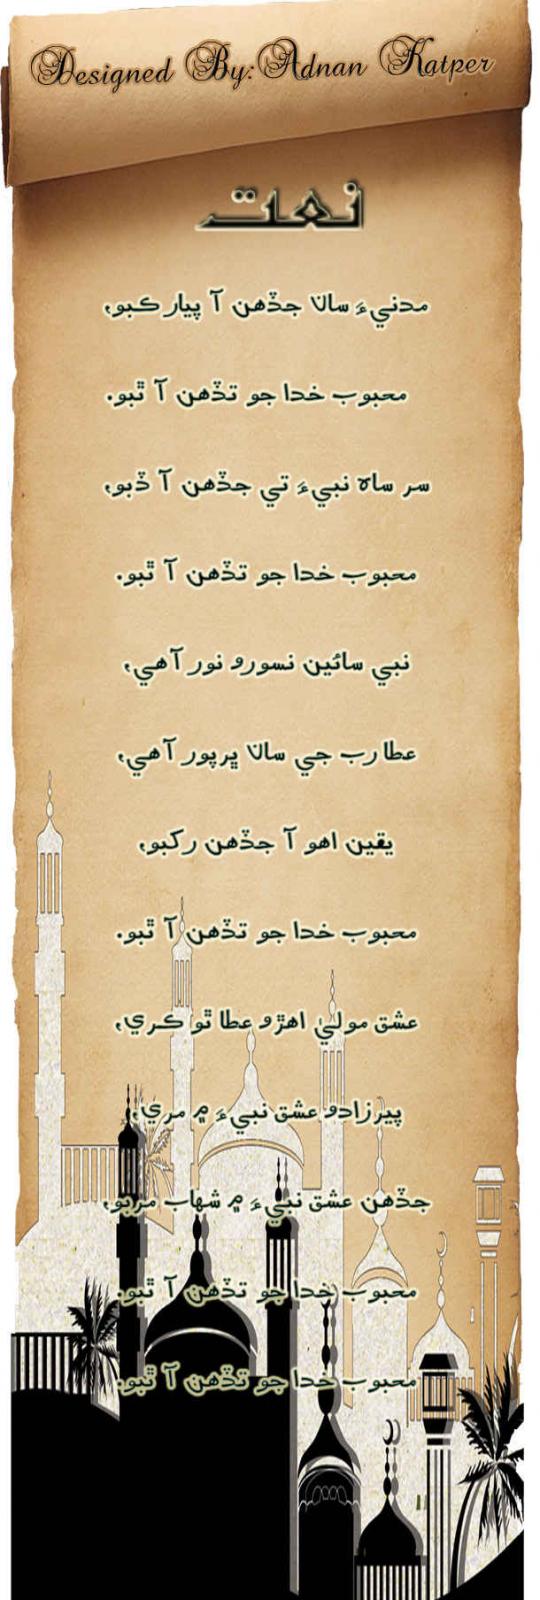 Designed By: Adnan Katper
نعت
مدنيءَ سان جڏهن آ پيار ڪبو،
محبوب خدا جو تڏهن آ ٿبو.
سر ساهه نبيءَ تي جڏهن آ ڏبو،
محبوب خدا جو تڏهن آ ٿبو.
نبي سائين نسورو نور آهي،
عطا رب جي سان ڀرپور آهي،
يقين اهو آ جڏهن رکبو،
محبوب خدا جو تڏهن آ ٿبو.
عشق موليٰ اهڙو عطا ٿو ڪري،
پيرزادو عشق نبيءَ ۾ مري،
جڏهن عشق نبيءَ ۾ شهاب مربو،
محبوب خدا جو تڏهن آ ٿبو.
محبوب خدا جو تڏهن آ ٿبو.